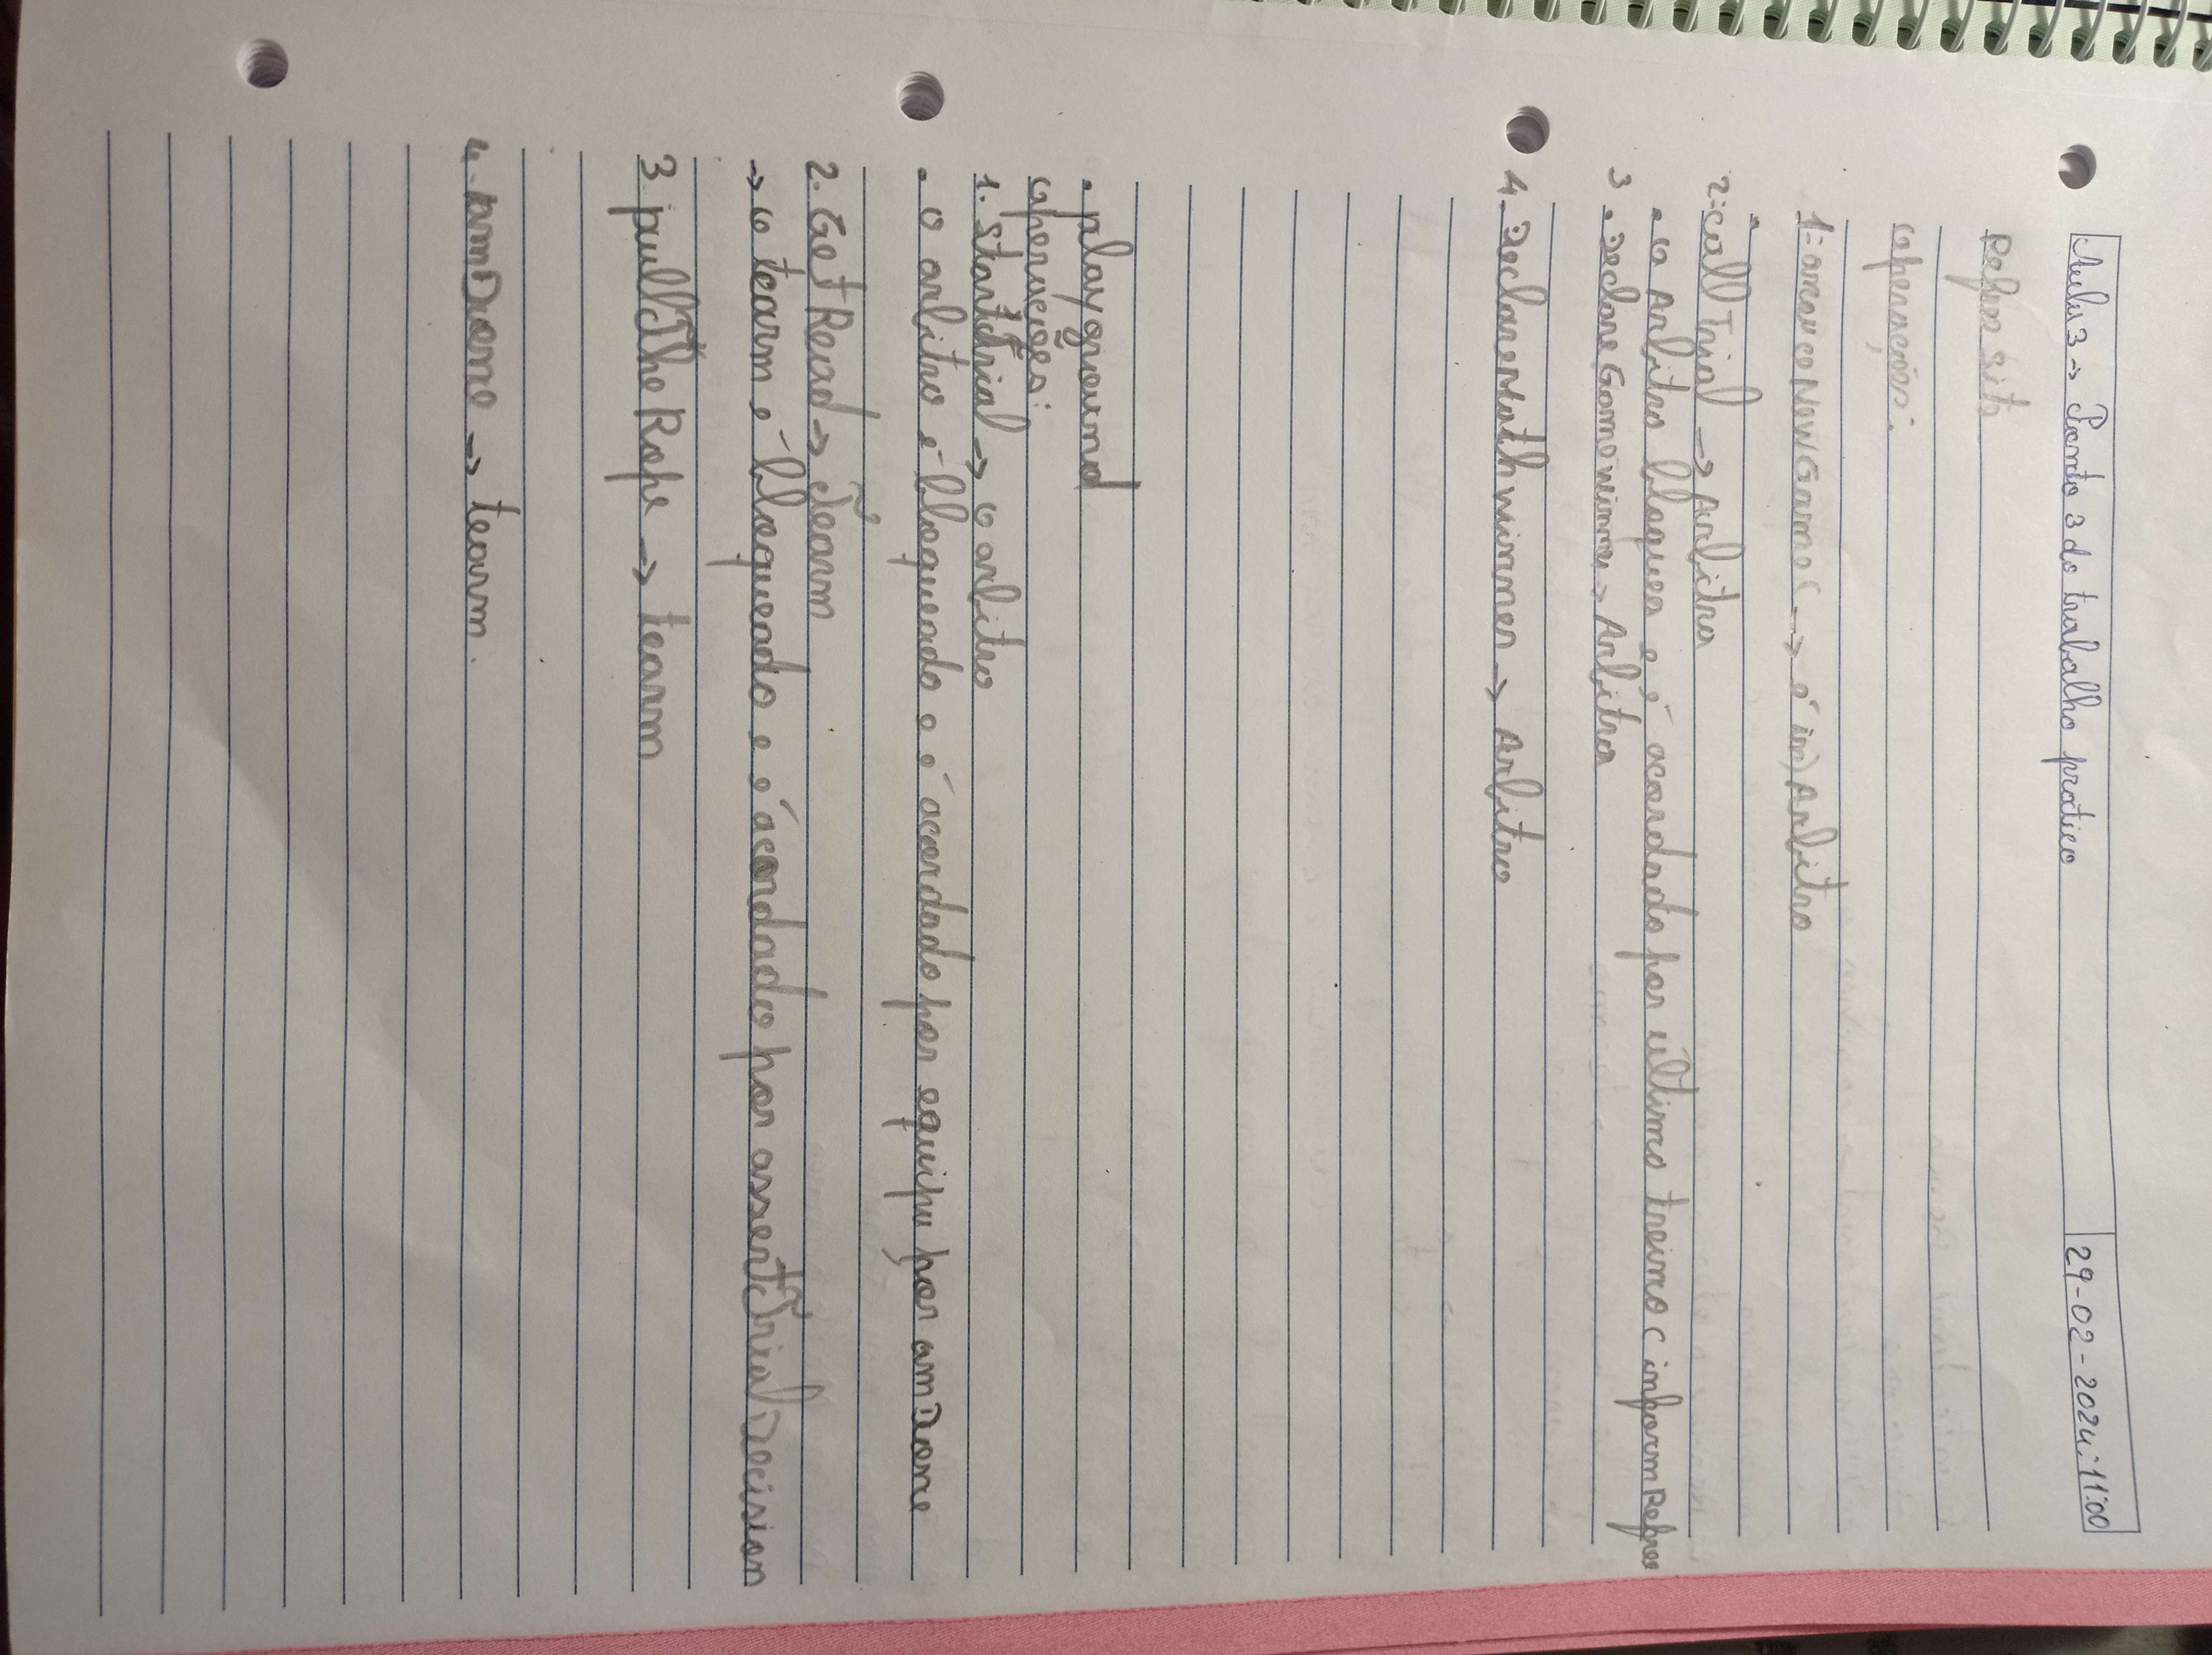 Aula 3 -> Ponto 3 do trabalho pratico
29-02-2024:11:00
Refere sit
operações:
1- announceNewGame ( -> é in) Arbitro
2: call Trial -> Arbitro
• o Arbitro bloquea e é acordado por ultimo treino ( informRefree
3. DeclareGameWinner -> Arbitro
4. Declare Math winner -> Arbitro
• playground
operações:
1. StartTrial -> o arbitro
• o arbitro é bloqueado e é acordado por equipa, por amDone
2. Get Read -> Team
-> o team é bloqueado e é acordado por assertTrialDecision
3 pullTheRope -> team
4. amDone -> team.